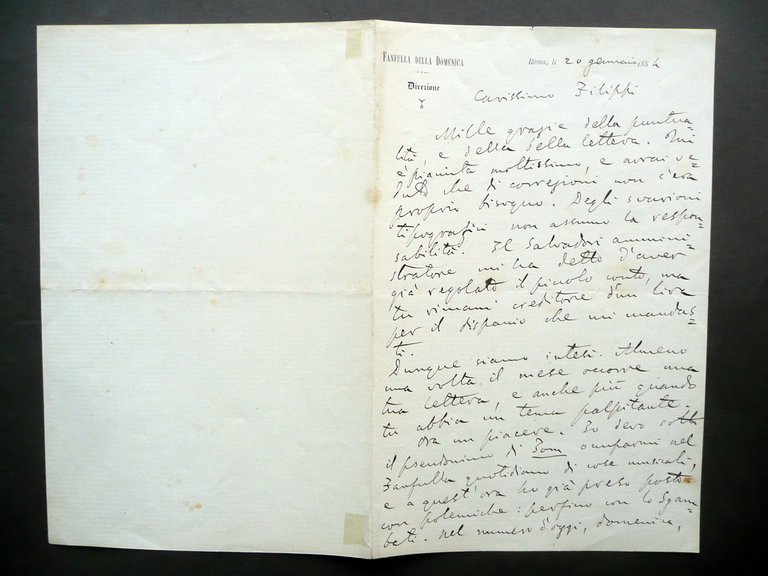 FANFULLA DELLA DOMENICA
Roma, li 20 gennaio 188
Direzione
Carissimo Filippi
Mille grazie della puntua=
lità, e della bella lettera. Mi
è piaciuta moltissimo, e avrai ve=
duto che di correzioni non c'era
proprio bisogno. Degli svarioni
tipografici non assumo la respon=
sabilità. Il Salvadori ammini=
stratore mi ha detto d'aver
già regolato il piccolo conto, ma
tu rimani creditore d'una lira
per il dispaccio che mi mandas=
ti.
Dunque siamo intesi. Almeno
una volta il mese occorre una
tua lettera, e anche più quando
tu abbia un tema palpitante.
Ora un piacere. Io devo sotto
il pseudonimo di Tom occuparmi nel
Fanfulla quotidiano di cose musicali,
e a quest'ora ho già preso posto
con polemiche: perfino con lo Sgam=
bati. Nel numero d'oggi, domenica,